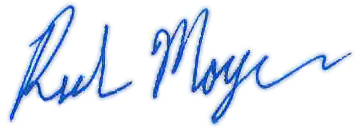 Rick Moyer